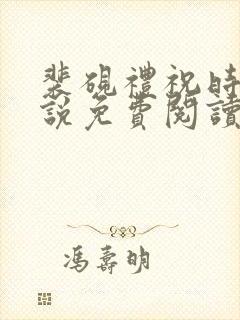 裴硯禮祝時
說免費閱讀
馮壽明